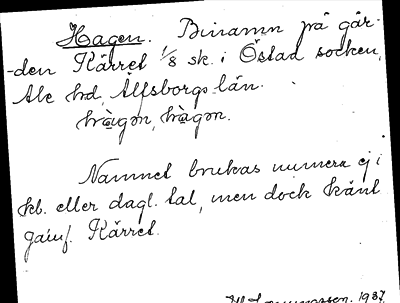 Hagen. Binamn på går-
-den Kärret 1/8 sk. i Östad socken,
Ale hd, Älfsborgs län.
hàgǝn, hàgǝn.
Namnet brukas numera ej i
kb. eller dagl. tal, men dock känt
jämf. Kärret.
1937